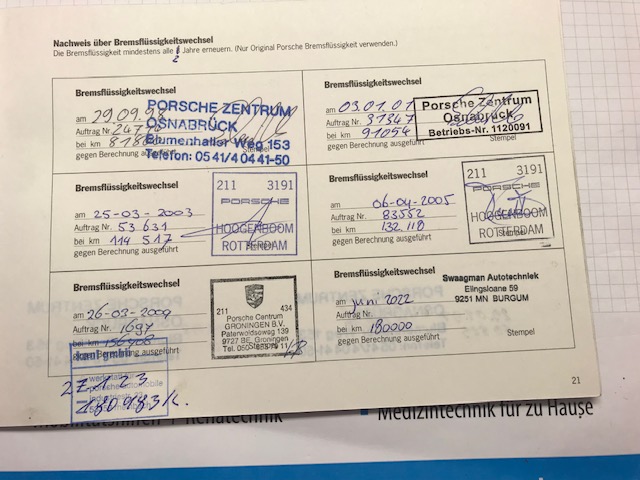 Nachweis über Bremsflüssigkeitswechsel
Die Bremsflüssigkeit mindestens alle 2 Jahre erneuern. (Nur Original Porsche Bremsflüssigkeit verwenden.)
Bremsflüssigkeitswechsel
am 29.09.98
Auftrag Nr.
bei km
gegen Berechnung ausgeführt
Stempel
PORSCHE ZENTRUM
OSNABRÜCK
Blumenhaller Weg 153
Telefon: 05 41/4 04 41-50
Bremsflüssigkeitswechsel
am 03.01.01
Auftrag Nr. 31347
bei km 91054
gegen Berechnung ausgeführt
Porsche Zentrum
Osnabrück
Betriebs-Nr. 1120091
Bremsflüssigkeitswechsel
am 25-03-2003
Auftrag Nr. 53631
bei km 114 517
gegen Berechnung ausgeführt
211 3191
PORSCHE
HOOGENBOOM
ROTTERDAM
Bremsflüssigkeitswechsel
am 06-04-2005
Auftrag Nr. 83552
bei km 132.118
gegen Berechnung ausgeführt
Stempel
211 3191
PORSCHE
HOOGENBOOM
ROTTERDAM
Bremsflüssigkeitswechsel
am 26-03-2009
Auftrag Nr. 1697
bei km 156908
gegen Berechnung ausgeführt
211 434
Porsche Centrum
GRONINGEN B.V.
Paterwoldseweg 139
9727 BE, Groningen
Stempel
Bremsflüssigkeitswechsel
am juni 2022
Auftrag Nr.
bei km 180000
gegen Berechnung ausgeführt
Stempel
Swaagman Autotechniek
Elingsloane 59
9251 MN BURGUM
kant gmbh
27.1.23
180983 K.
21
Medizintechnik für zu Hause